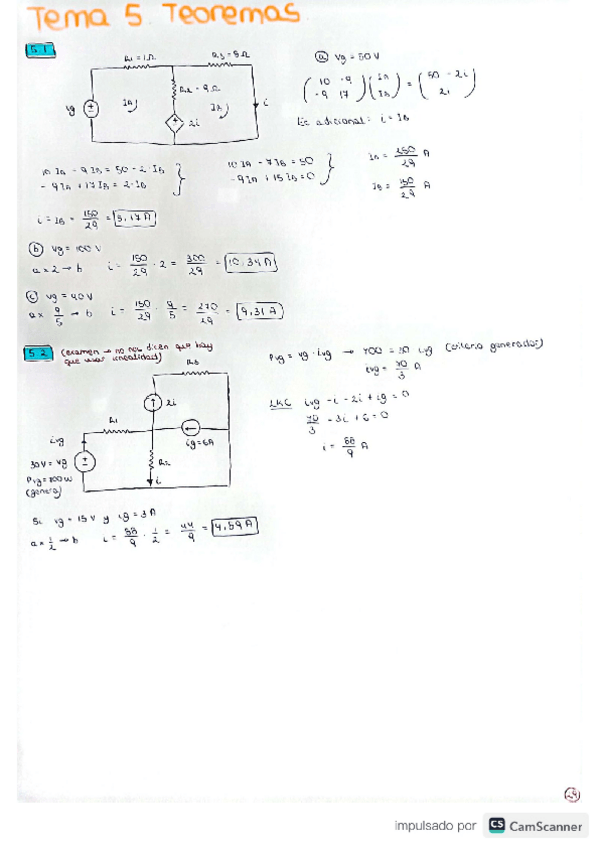 Tema 5. Teoremas
5.1
R1 = 1Ω
R3 = 8Ω
R2 = 9Ω
vg
IA
IB
2i
i
(a) vg = 50V
( 10 -9 ; -9 17 ) ( IA ; IB ) = ( 50 - 2i ; 2i )
Ec adicional: i = IB
10 IA - 9 IB = 50 - 2·IB
- 9 IA + 17 IB = 2·IB
10 IA - 7 IB = 50
-9 IA + 15 IB = 0
IA = 250/29 A
IB = 150/29 A
i = IB = 150/29 = 5,17A
(b) vg = 100 V
a x 2 → b i = 150/29 · 2 = 300/29 = 10,34 A
(c) vg = 90V
a x 9/5 → b i = 150/29 · 9/5 = 270/29 = 9,31 A
5.2 (examen → no nos dicen que hay
que usar linealidad)
R3
2i
R1
ig = 6A
ivg
30V = vg
R2
i
Pvg = 700 W
(genera)
Pvg = vg · ivg → 700 = 30 ivg (criterio generador)
ivg = 70/3 A
LKC ivg - i - 2i + ig = 0
70/3 - 3i + 6 = 0
i = 88/9 A
Si vg = 15 V y ig = 3 A
a x 1/2 → b i = 88/9 · 1/2 = 44/9 = 4,89 A
29
impulsado por CS CamScanner